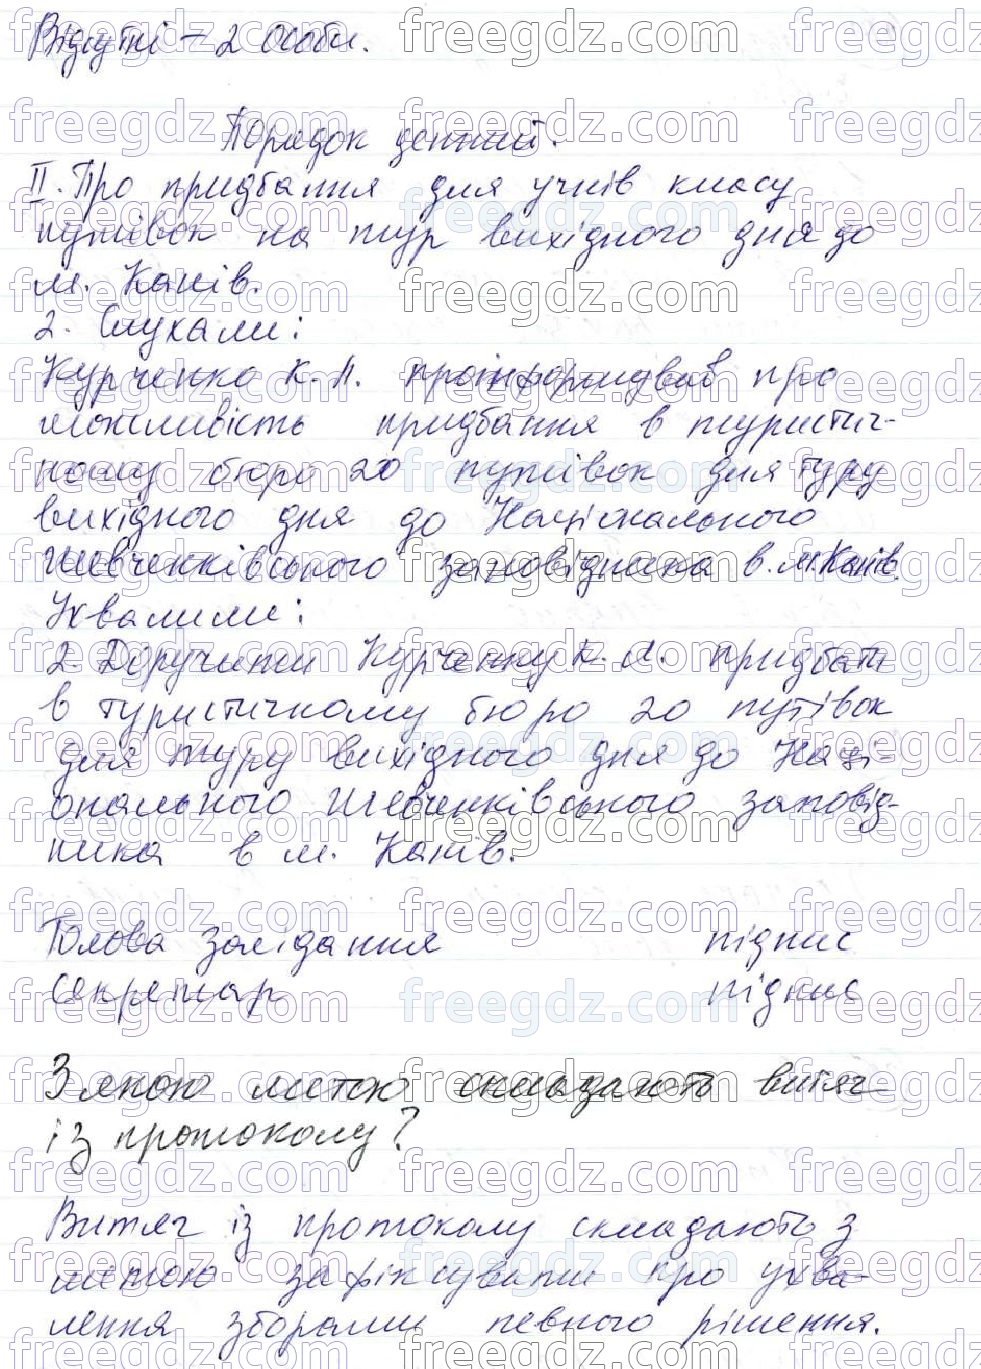 Відсутні – 2 особи.
Порядок денний.
II. Про придбання для учнів класу
путівок на тур вихідного дня до
м. Канів.
2. Слухали:
Курченко К. Л. проінформував про
можливість придбання в туристич-
ному бюро 20 путівок для туру
вихідного дня до Національного
Шевченківського заповідника в м. Канів.
Ухвалили:
2. Доручити Курченку К. Л. придбати
в туристичному бюро 20 путівок
для туру вихідного дня до Наці-
онального Шевченківського заповід-
ника в м. Канів.
Голова засідання підпис
Секретар підпис
З якою метою складають витяг
із протоколу?
Витяг із протоколу складають з
метою зафіксувати про ухва-
лення зборами певного рішення.
freegdz.com